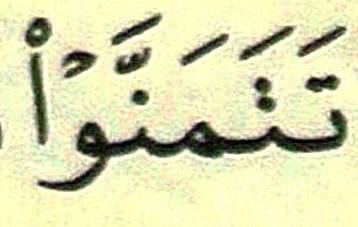 تَتَمَنَّوۡاْ